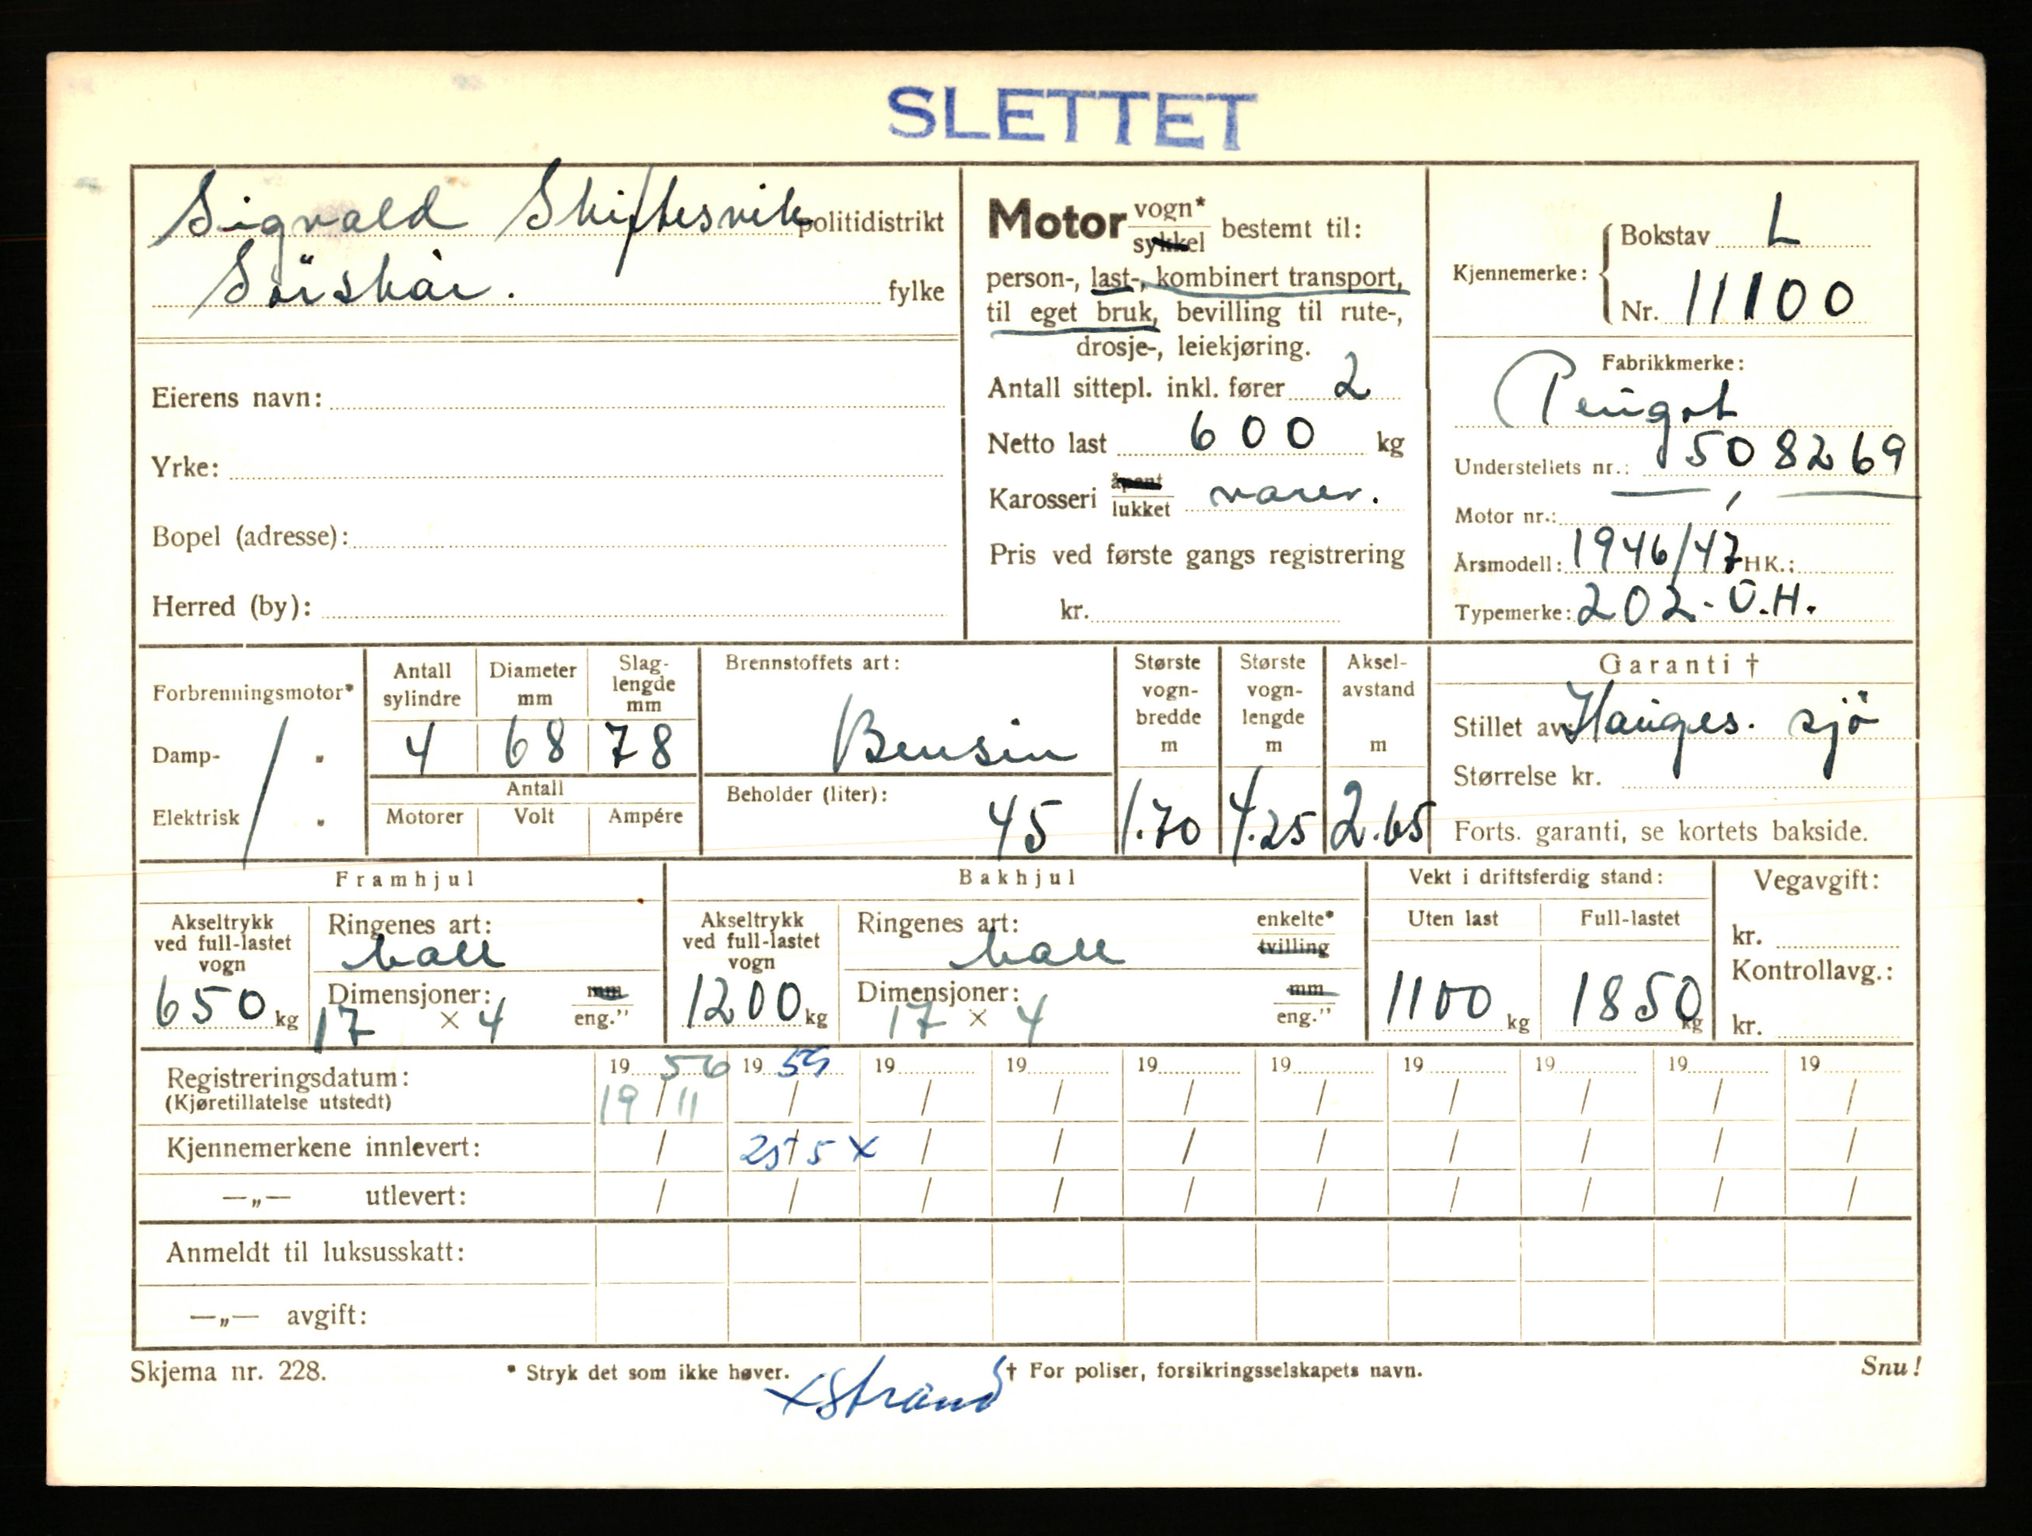 SLETTET
Sigvald Skiftesvik politidistrikt
Sörskår. fylke
Eierens navn:
Yrke:
Bopel (adresse):
Herred (by):
Motor vogn* sykkel bestemt til:
person-, last-, kombinert transport,
til eget bruk, bevilling til rute-,
drosje-, leiekjøring.
Antall sittepl. inkl. fører 2
Netto last 600 kg
Karosseri åpent lukket varev.
Pris ved første gangs registrering
kr.
Kjennemerke: Bokstav L
Nr. 11100
Fabrikkmerke:
Peugot
Understellets nr.: 508269
Motor nr.:
Årsmodell: 1946/47 HK.:
Typemerke: 202-Ü.H.
Forbrenningsmotor*
Damp- "
Elektrisk "
Antall sylindre Diameter mm Slag-lengde mm
4 68 78
Antall
Motorer Volt Ampére
Brennstoffets art:
Bensin
Beholder (liter):
45
Største vogn-bredde m Største vogn-lengde m Aksel-avstand m
1.70 4.25 2.65
Garanti †
Stillet av: Hauges. sjö
Størrelse kr.
Forts. garanti, se kortets bakside.
Framhjul
Akseltrykk ved full-lastet vogn
650 kg
Ringenes art:
ball
Dimensjoner: mm
17 × 4 eng."
Bakhjul
Akseltrykk ved full-lastet vogn
1200 kg
Ringenes art: enkelte*
ball tvilling
Dimensjoner: mm
17 × 4 eng."
Vekt i driftsferdig stand:
Uten last Full-lastet
1100 kg 1850 kg
Vegavgift:
kr.
Kontrollavg.:
kr.
Registreringsdatum: 19 56 19 59 19 19 19 19 19 19 19 19
(Kjøretillatelse utstedt) 19 / 11 / / / / / / / / /
Kjennemerkene innlevert: / 25/5 x / / / / / / / /
—„— utlevert: / / / / / / / / / /
Anmeldt til luksusskatt:
—„— avgift:
Skjema nr. 228. * Stryk det som ikke høver. † For poliser, forsikringsselskapets navn. Snu!
x Strand